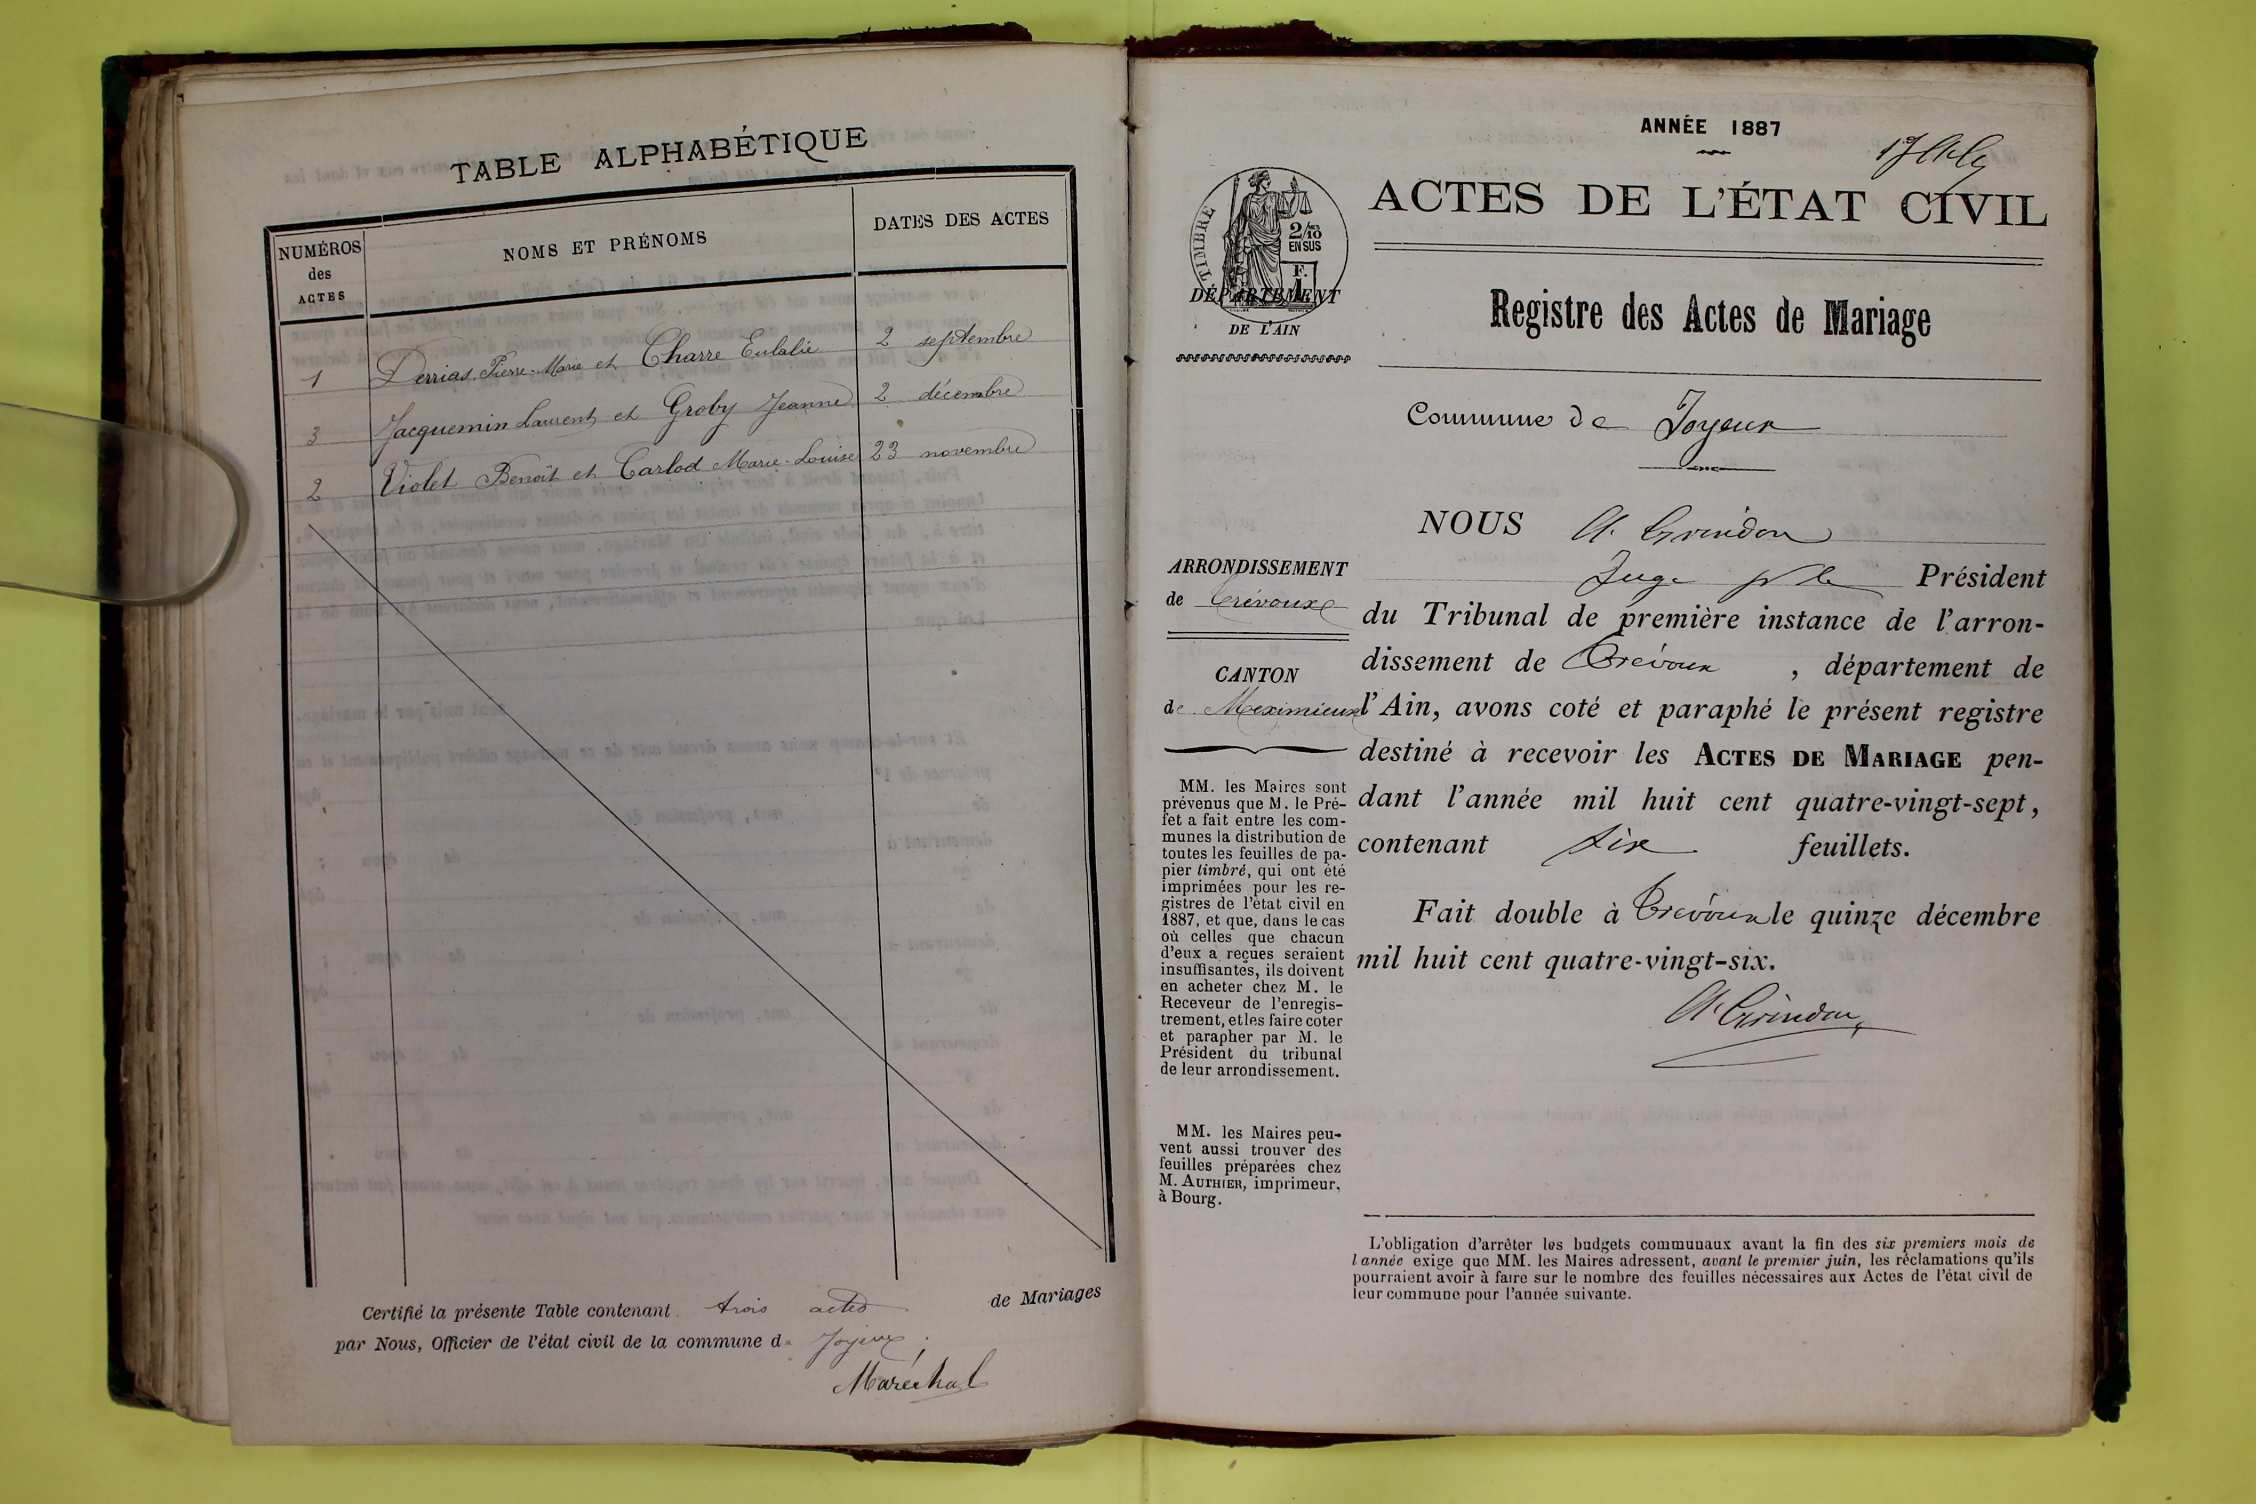 TABLE ALPHABÉTIQUE
NUMÉROS des ACTES
NOMS ET PRÉNOMS
DATES DES ACTES
1 Derrias Pierre-Marie et Charre Eulalie 2 septembre
3 Jacquemin Laurent et Groby Jeanne 2 décembre
2 Violet Benoît et Carlod Marie-Louise 23 novembre
Certifié la présente Table contenant trois actes de Mariages
par Nous, Officier de l'état civil de la commune de Joyeux.
Maréchal
ANNÉE 1887
ACTES DE L'ÉTAT CIVIL
TIMBRE
2/10
EN SUS
F.
1
DÉPARTEMENT
DE L'AIN
Registre des Actes de Mariage
Commune de Joyeux
ARRONDISSEMENT
de Trévoux
CANTON
de Meximieux
MM. les Maires sont
prévenus que M. le Pré-
fet a fait entre les com-
munes la distribution de
toutes les feuilles de pa-
pier timbré, qui ont été
imprimées pour les re-
gistres de l'état civil en
1887, et que, dans le cas
où celles que chacun
d'eux a reçues seraient
insuffisantes, ils doivent
en acheter chez M. le
Receveur de l'enregis-
trement, et les faire coter
et parapher par M. le
Président du tribunal
de leur arrondissement.
MM. les Maires peu-
vent aussi trouver des
feuilles préparées chez
M. AUTHIER, imprimeur,
à Bourg.
NOUS A. Grindon
Juge pr le Président
du Tribunal de première instance de l'arron-
dissement de Trévoux, département de
l'Ain, avons coté et paraphé le présent registre
destiné à recevoir les ACTES DE MARIAGE pen-
dant l'année mil huit cent quatre-vingt-sept,
contenant six feuillets.
Fait double à Trévoux le quinze décembre
mil huit cent quatre-vingt-six.
A. Grindon
L'obligation d'arrêter les budgets communaux avant la fin des six premiers mois de
l'année exige que MM. les Maires adressent, avant le premier juin, les réclamations qu'ils
pourraient avoir à faire sur le nombre des feuilles nécessaires aux Actes de l'état civil de
leur commune pour l'année suivante.